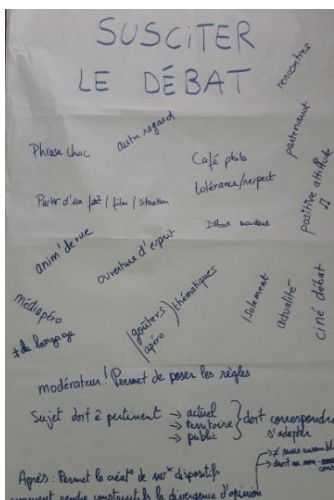 SUSCITER
LE DÉBAT
rencontres
autre regard
partenariat
Phrase choc
Café philo
tolérance/respect
positive attitude
Partir d'un fait / film / situation
Débat mouvant
anim° de rue
ouverture d'esprit
médiapéro
≠ de langage
goûters
apéro
thématiques
isolement
actualité
ciné débat
modérateur! Permet de poser les règles
Sujet doit ê pertinent → actuel
→ territoire
→ public
doit correspondre
s'adapter
Après : Permet la créat° de dispositifs
comment rendre constructifs la divergence d'opinion